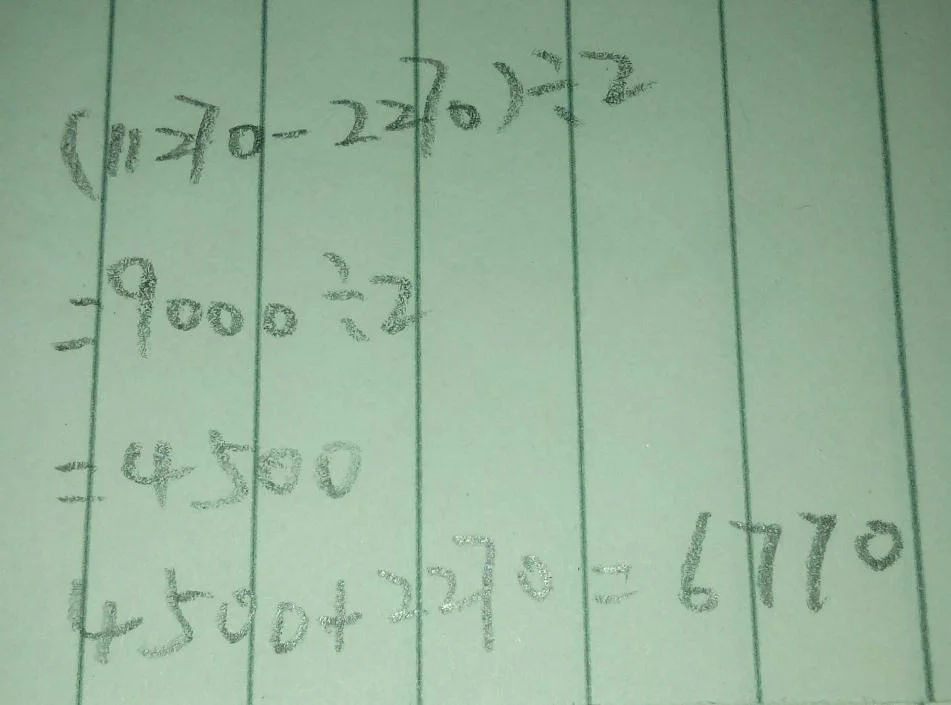 (11270-2270)÷2
=9000÷2
=4500
4500+2270=6770